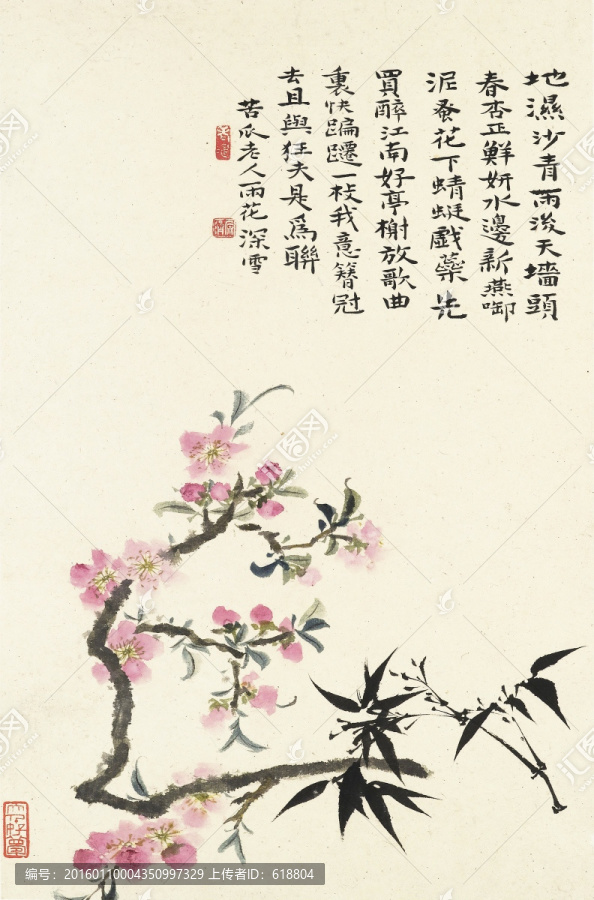 地濕沙青雨後天墻頭
春杏正鮮妍水邊新燕啣
泥蚤花下蜻蜓戯藥先
買醉江南好亭榭放歌曲
裏快蹁躚一枝我意簪冠
去且與狂夫是為聯
苦瓜老人雨花深雪
汇图网
编号：20160110004350997329 上传者ID：618804